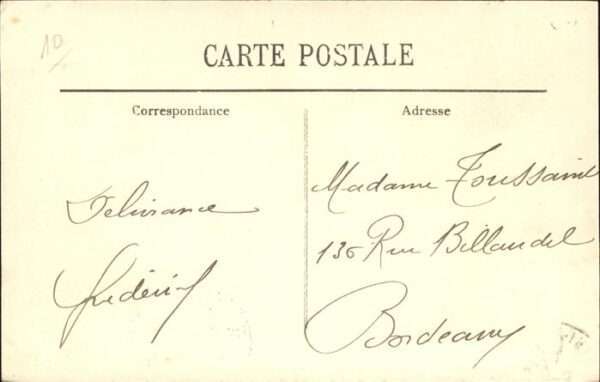 10
CARTE POSTALE
Correspondance
Adresse
Delivrance
Frédéric
Madame Toussaint
136 Rue Billaudel
Bordeaux